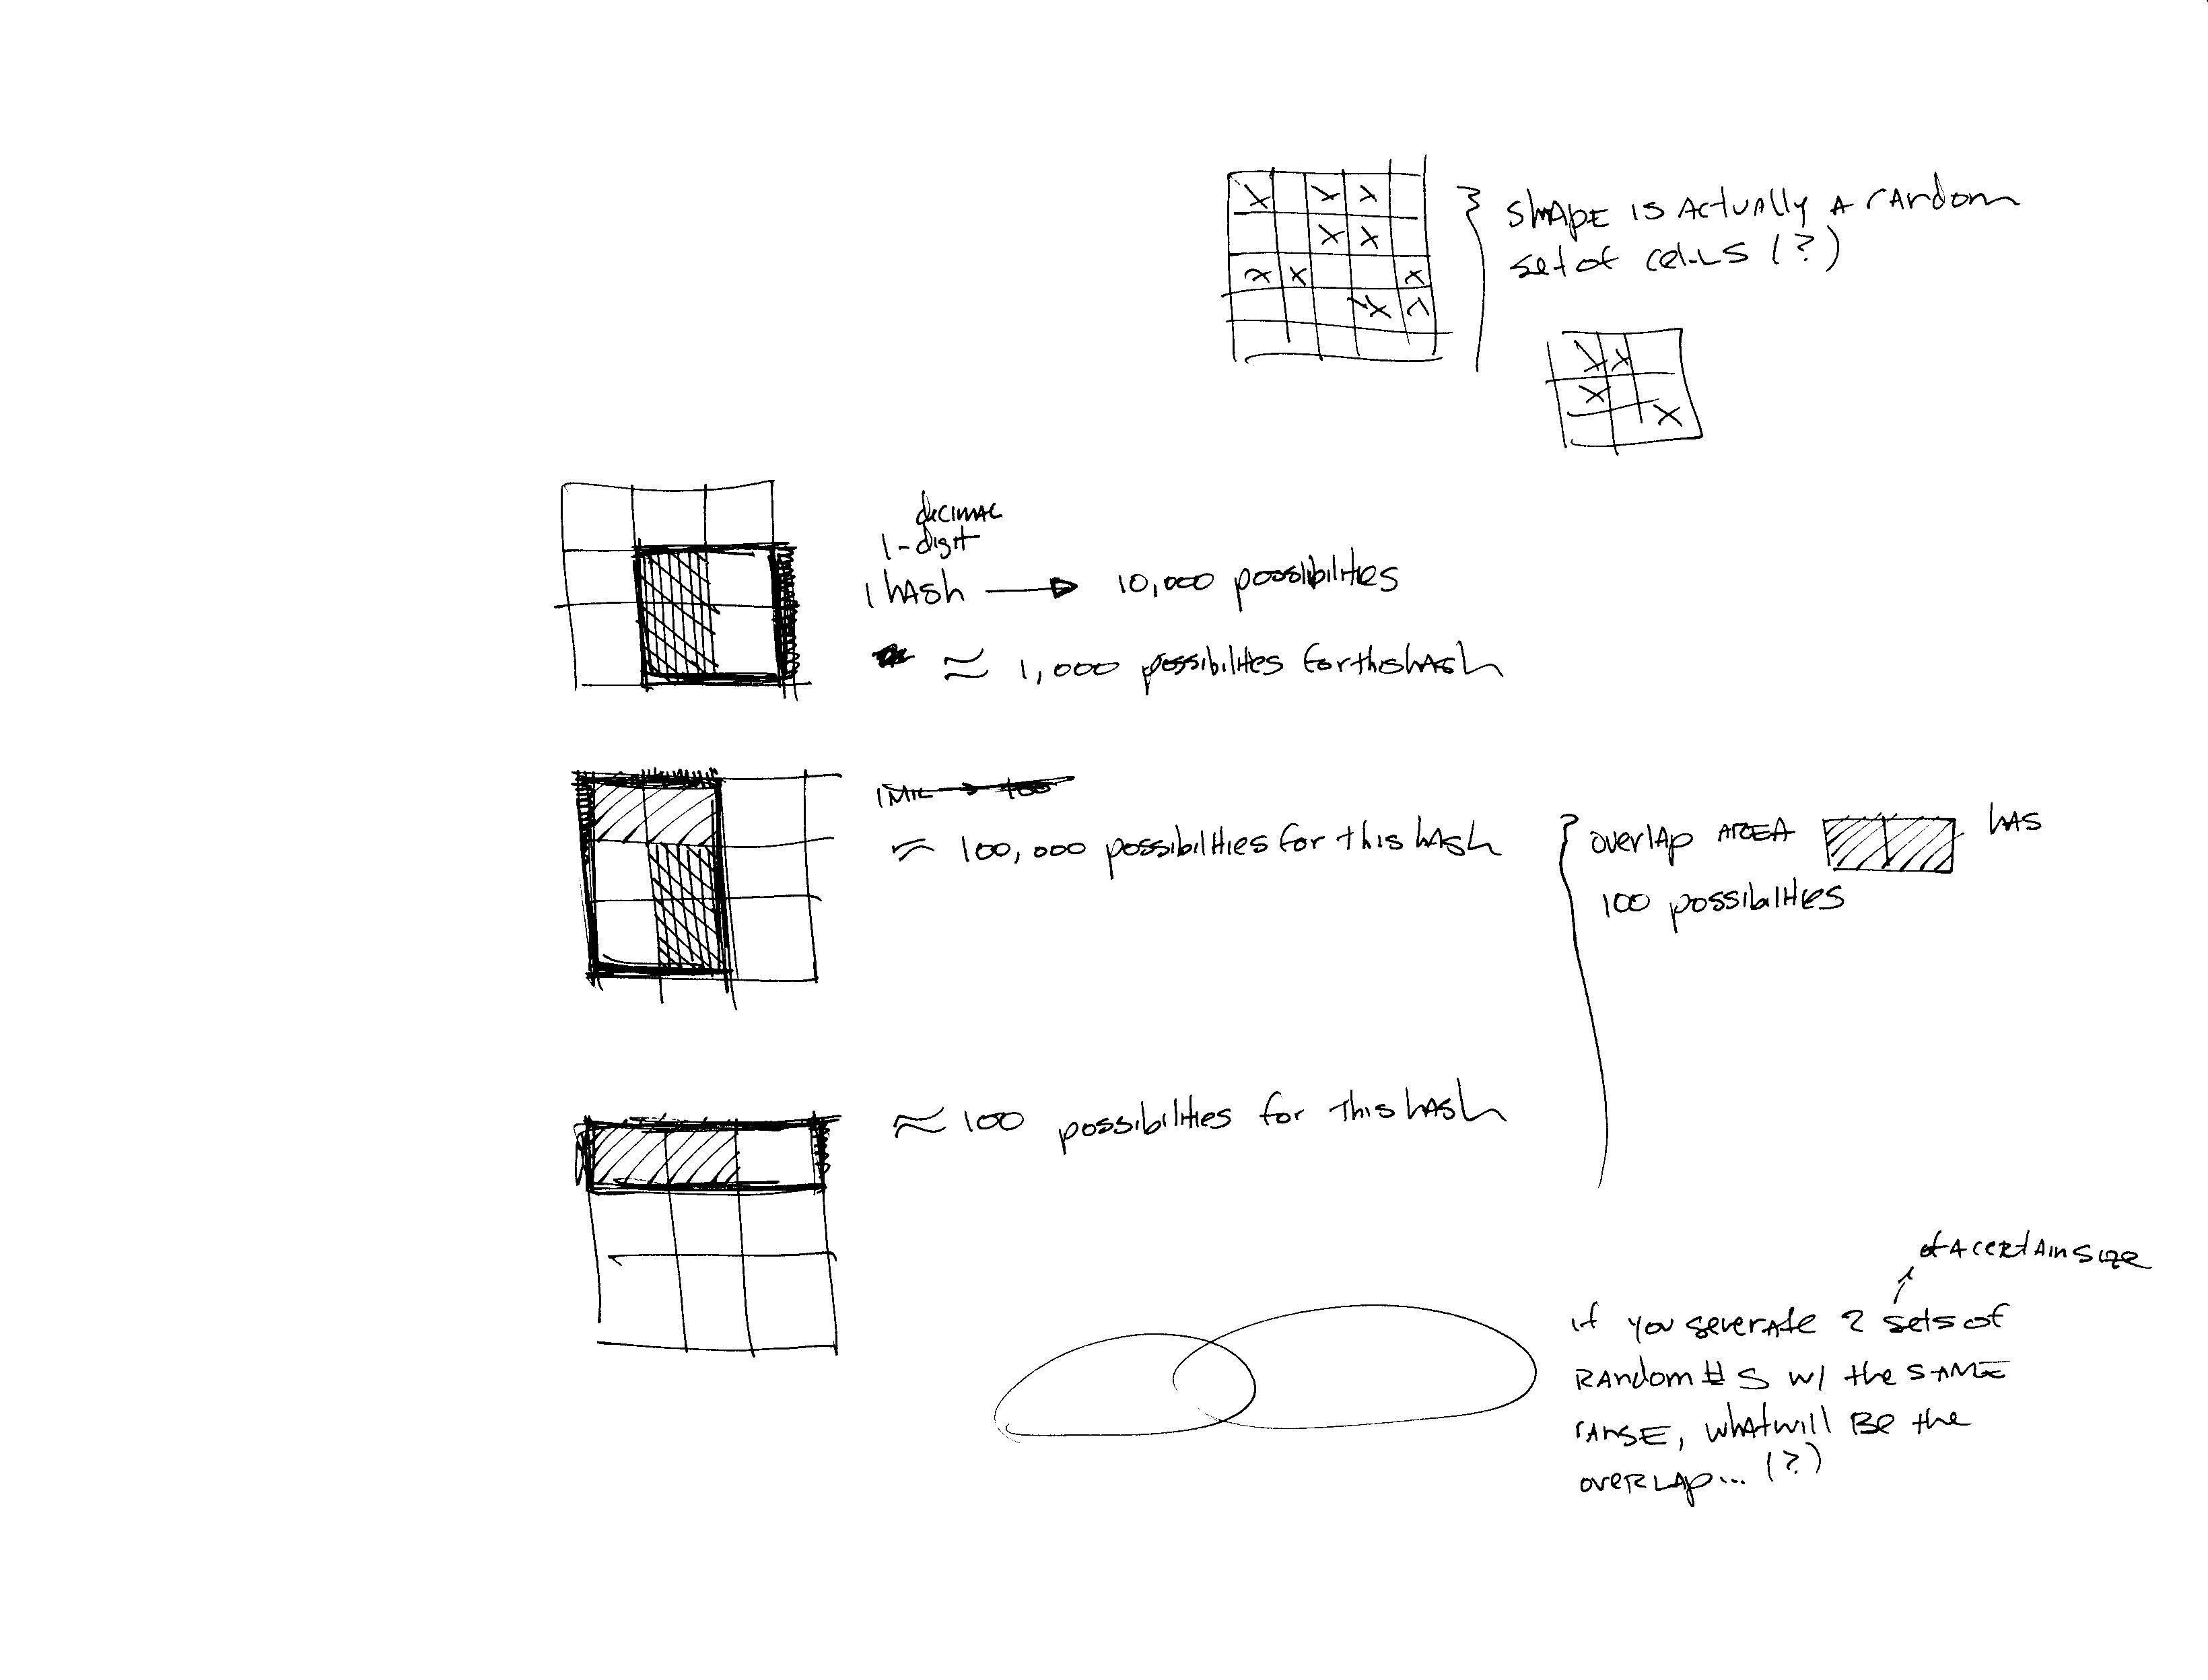 SHAPE IS ACTUALLY A RANDOM
set of CELLS (?)
decimal
1-digit
1 hash → 10,000 possibilities
≈ 1,000 possibilites for this hash
1 MIL → 100
≈ 100,000 possibilities for this hash
overlap AREA has
100 possibilities
≈ 100 possibilities for this hash
of a certain size
if you generate 2 sets of
random #s w/ the same
range, what will be the
overlap... (?)